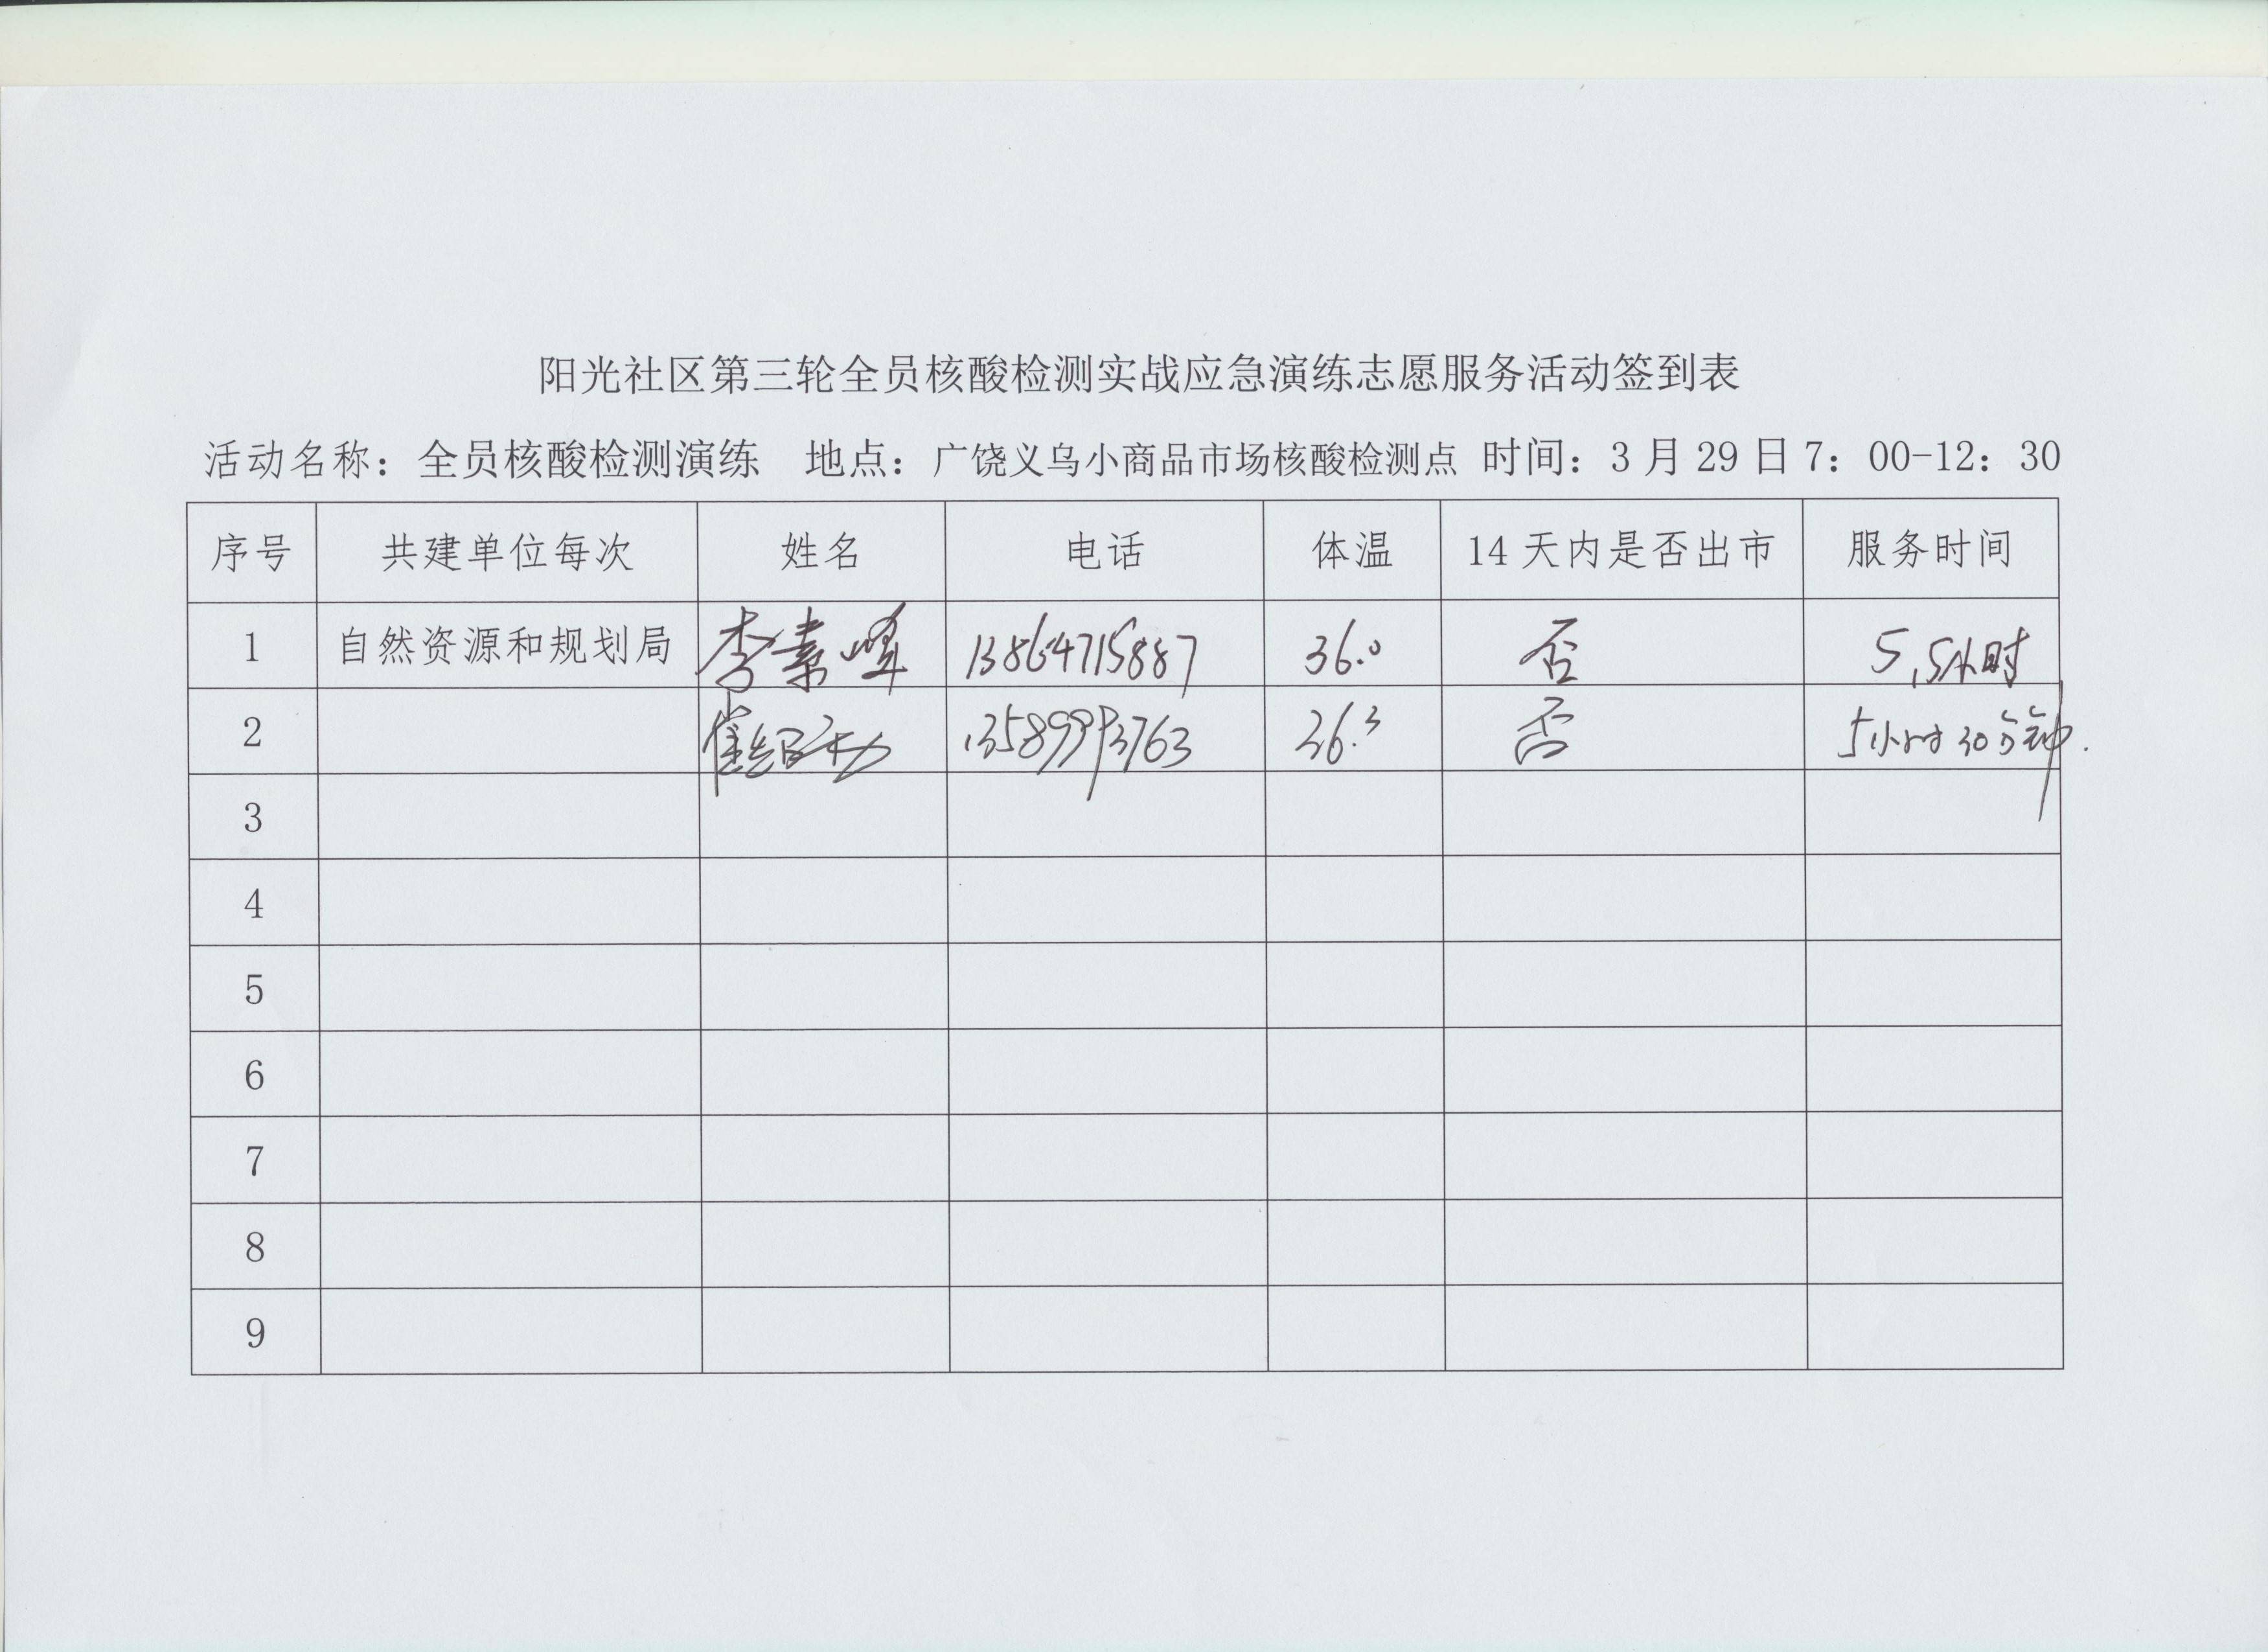 阳光社区第三轮全员核酸检测实战应急演练志愿服务活动签到表
活动名称：全员核酸检测演练 地点：广饶义乌小商品市场核酸检测点 时间：3月29日7：00-12：30
序号 共建单位每次 姓名 电话 体温 14天内是否出市 服务时间
1 自然资源和规划局 李素峰 13864715887 36.0 否 5.5小时
2 13589993763 36.3 否 5小时30分钟.
3
4
5
6
7
8
9